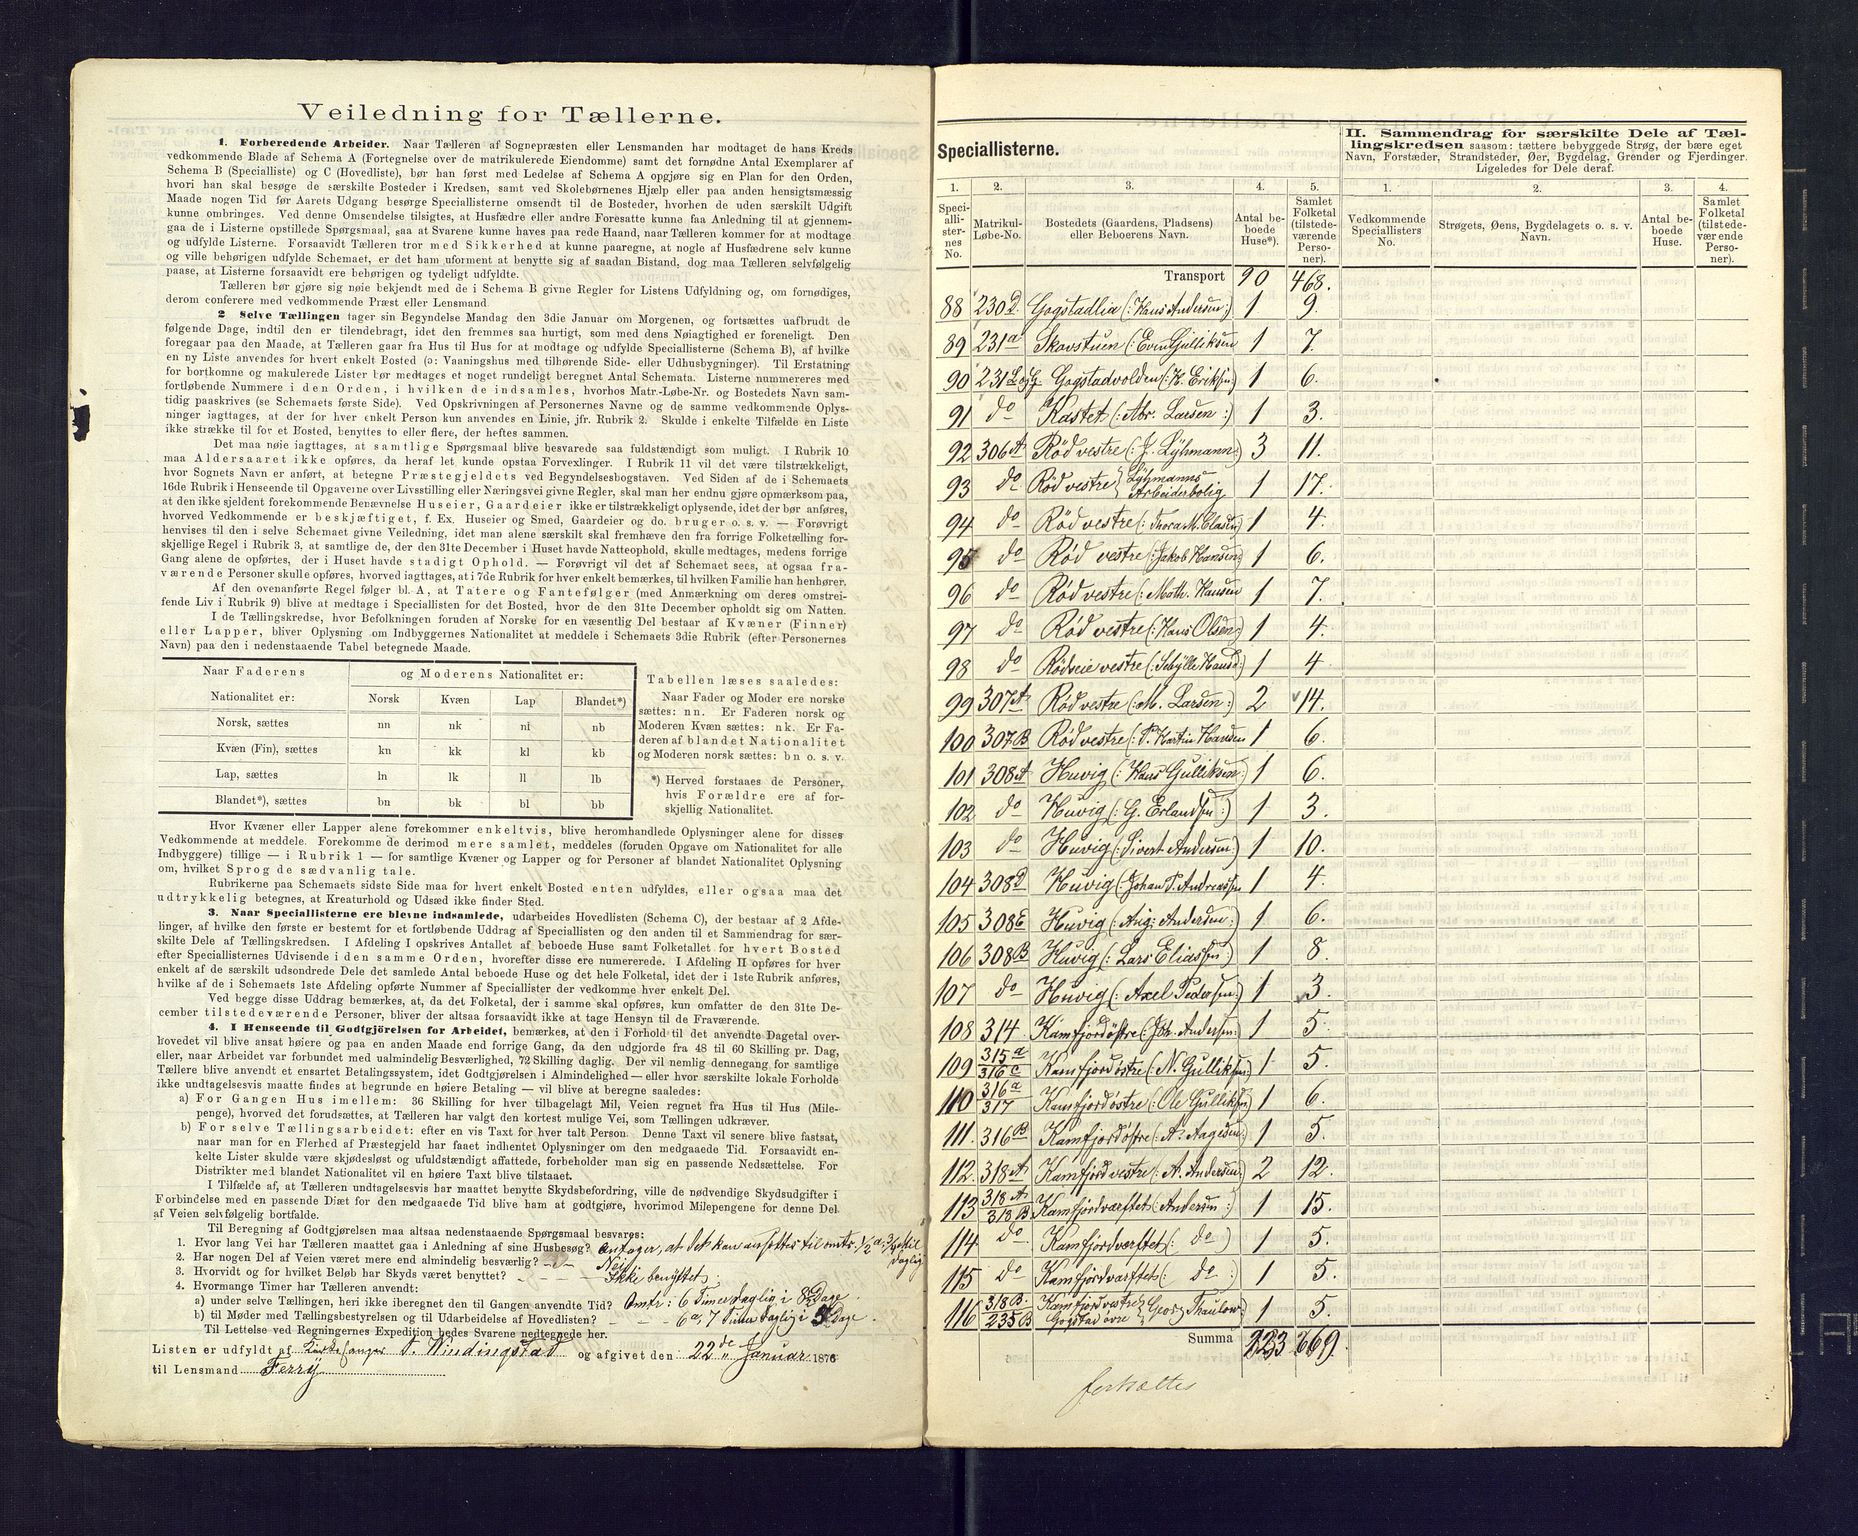 Veiledning for Tællerne.
1. Forberedende Arbeider. Naar Tælleren af Sognepræsten eller Lensmanden har modtaget de hans Kreds
vedkommende Blade af Schema A (Fortegnelse over de matrikulerede Eiendomme) samt det fornødne Antal Exemplarer af
Schema B (Specialliste) og C (Hovedliste), bør han først med Ledelse af Schema A opgjøre sig en Plan for den Orden,
hvori han skal besøge de særskilte Bosteder i Kredsen, samt ved Skolebørnenes Hjælp eller paa anden hensigtsmæssig
Maade nogen Tid før Aarets Udgang besørge Speciallisterne omsendt til de Bosteder, hvorhen de uden særskilt Udgift
kunne ombringes. Ved denne Omsendelse tilsigtes, at Husfædre eller andre Foresatte kunne faa Anledning til at gjennem-
gaa de i Listerne opstillede Spørgsmaal, saa at Svarene kunne haves paa rede Haand, naar Tælleren kommer for at modtage
og udfylde Listerne. Forsaavidt Tælleren tror med Sikkerhed at kunne paaregne, at nogle af Husfædrene selv kunne
og ville behørigen udfylde Schemaet, er det ham uforment at benytte sig af saadan Bistand, dog maa Tælleren selvfølgelig
paase, at Listerne forsaavidt ere behørigen og tydeligt udfyldte.
Tælleren bør gjøre sig nøie bekjendt med de i Schema B givne Regler for Listens Udfyldning og, om fornødiges,
derom conferere med vedkommende Præst eller Lensmand
2 Selve Tællingen tager sin Begyndelse Mandag den 3die Januar om Morgenen, og fortsættes uafbrudt de
følgende Dage, indtil den er tilendebragt, idet den fremmes saa hurtigt, som med dens Nøiagtighed er foreneligt. Den
foregaar paa den Maade, at Tælleren gaar fra Hus til Hus for at modtage og udfylde Speciallisterne (Schema B), af hvilke
en ny Liste anvendes for hvert enkelt Bosted (o: Vaaningshus med tilhørende Side- eller Udhusbygninger). Til Erstatning
for bortkomne og makulerede Lister bør medtages et noget rundeligt beregnet Antal Schemata. Listerne nummereres med
fortløbende Nummere i den Orden, i hvilken de indsamles, hvorhos Matr.-Løbe-Nr. og Bostedets Navn sam-
tidig paaskrives (se Schemaets første Side). Ved Opskrivningen af Personernes Navne og de samme vedkommende Oplys-
ninger iagttages, at der for hver enkelt Person kun anvendes en Linie, jfr. Rubrik 2. Skulde i enkelte Tilfælde en Liste
ikke strække til for et Bosted, benyttes to eller flere, der heftes sammen.
Det maa nøie iagttages, at samtlige Spørgsmaal blive besvarede saa fuldstændigt som muligt. I Rubrik 10
maa Aldersaaret ikke opføres, da heraf let kunde opstaa Forvexlinger. I Rubrik 11 vil det være tilstrækkeligt,
hvor Sognets Navn er anført, at betegne Præstegjeldets ved Begyndelsesbogstaven. Ved Siden af de i Schemaets
16de Rubrik i Henseende til Opgaverne over Livsstilling eller Næringsvei givne Regler, skal man her endnu gjøre opmærksom paa,
at den ikke sjeldent forekommende Benævnelse Huseier, Gaardeier ikke er tilstrækkeligt oplysende, idet der bør anføres,
hvorved Vedkommende er beskjæftiget, f. Ex. Huseier og Smed, Gaardeier og do. bruger o. s. v. — Forøvrigt
henvises til den i selve Schemaet givne Veiledning, idet man alene særskilt skal fremhæve den fra forrige Folketælling for-
skjellige Regel i Rubrik 3, at samtlige de, der den 31te December i Huset havde Natteophold, skulle medtages, medens forrige
Gang alene de opførtes, der i Huset havde stadigt Ophold. — Forøvrigt vil det af Schemaet sees, at ogsaa fra-
værende Personer skulle opføres, hvorved iagttages, at i 7de Rubrik for hver enkelt bemærkes, til hvilken Familie han henhører.
Af den ovenanførte Regel følger bl. A, at Tatere og Fantefølger (med Anmærkning om deres omstrei-
fende Liv i Rubrik 9) blive at medtage i Speciallisten for det Bosted, hvor de den 31te December opholdt sig om Natten.
I de Tællingskredse, hvor Befolkningen foruden af Norske for en væsentlig Del bestaar af Kvæner (Finner)
eller Lapper, bliver Oplysning om Indbyggernes Nationalitet at meddele i Schemaets 3die Rubrik (efter Personernes
Navn) paa den i nedenstaaende Tabel betegnede Maade.
Naar Faderens
Nationalitet er:
og Moderens Nationalitet er:
Norsk Kvæn Lap Blandet*)
Norsk, sættes nn nk nl nb
Kvæn (Fin), sættes kn kk kl kb
Lap, sættes ln lk ll lb
Blandet*), sættes bn bk bl bb
Tabellen læses saaledes:
Naar Fader og Moder ere norske
sættes: nn. Er Faderen norsk og
Moderen Kvæn sættes: nk. Er Fa-
deren af blandet Nationalitet
og Moderen norsk sættes: bn o. s. v.
*) Herved forstaaes de Personer,
hvis Forældre ere af for-
skjellig Nationalitet.
Hvor Kvæner eller Lapper alene forekommer enkeltvis, blive heromhandlede Oplysninger alene for disses
Vedkommende at meddele. Forekomme de derimod mere samlet, meddeles (foruden Opgave om Nationalitet for alle
Indbyggere) tillige — i Rubrik 1 — for samtlige Kvæner og Lapper og for Personer af blandet Nationalitet Oplysning
om, hvilket Sprog de sædvanlig tale.
Rubrikerne paa Schemaets sidste Side maa for hvert enkelt Bosted enten udfyldes, eller ogsaa maa det
udtrykkelig betegnes, at Kreaturhold og Udsæd ikke finder Sted.
3. Naar Speciallisterne ere blevne indsamlede, udarbeides Hovedlisten (Schema C), der bestaar af 2 Afde-
linger, af hvilke den første er bestemt for et fortløbende Uddrag af Speciallisten og den anden til et Sammendrag for sær-
skilte Dele af Tællingskredsen. I Afdeling I opskrives Antallet af beboede Huse samt Folketallet for hvert Bosted
efter Speciallisternes Udvisende i den samme Orden, hvorefter disse ere numererede. I Afdeling II opføres for hver
enkelt af de særskilt udsondrede Dele det samlede Antal beboede Huse og det hele Folketal, idet der i 1ste Rubrik anføres,
hvilke af de i Schemaets 1ste Afdeling opførte Nummer af Speciallister der vedkomme hver enkelt Del.
Ved begge disse Uddrag bemærkes, at, da det Folketal, der i samme skal opføres, kun omfatter de den 31te De-
cember tilstedeværende Personer, bliver der altsaa forsaavidt ikke at tage Hensyn til de Fraværende.
4. I Henseende til Godtgjörelsen for Arbeidet, bemærkes, at den i Forhold til det anvendte Dagetal over-
hovedet vil blive ansat høiere og paa en anden Maade end forrige Gang, da den udgjorde fra 48 til 60 Skilling pr. Dag,
eller, naar Arbeidet var forbundet med ualmindelig Besværlighed, 72 Skilling daglig. Der vil nemlig dennegang for samtlige
Tællere blive anvendt et ensartet Betalingssystem, idet Godtgjörelsen i Almindelighed — eller hvor særskilte lokale Forholde
ikke undtagelsesvis maatte findes at begrunde en høiere Betaling — vil blive at beregne saaledes:
a) For Gangen Hus imellem: 36 Skilling for hver tilbagelagt Mil, Veien regnet fra Hus til Hus (Mile-
penge), hvorved det forudsættes, at Tælleren har valgt den korteste mulige Vei, som Tællingen udkræver.
b) For selve Tællingsarbeidet: efter en vis Taxt for hver talt Person. Denne Taxt vil senere blive fastsat,
naar man for en Flerhed af Præstegjeld har faaet indhentet Oplysninger om den medgaaede Tid. Forsaavidt en-
kelte Lister skulde være skjødesløst og ufuldstændigt affattede, forbeholder man sig en passende Nedsættelse. For
Distrikter med blandet Nationalitet vil en høiere Taxt blive tilstaaet.
I Tilfælde af, at Tælleren undtagelsesvis har maattet benytte Skydsbefordring, ville de nødvendige Skydsudgifter i
Forbindelse med en passende Diæt for den medgaaede Tid blive ham at godtgjøre, hvorimod Milepengene for denne Del
af Veien selvfølgelig bortfalde.
Til Beregning af Godtgjørelsen for Arbeidet maa altsaa nedenstaaende Spørgsmaal besvares:
1. Hvor lang Vei har Tælleren maattet gaa i Anledning af sine Husbesøg? Antager, at det kan ansættes til omtr. 1/2 a 3/4 Mil daglig
2. Har nogen Del af Veien været mere end almindelig besværlig? Nei
3. Hvorvidt og for hvilket Beløb har Skyds været benyttet? Ikke benyttet.
4. Hvormange Timer har Tælleren anvendt:
a) under selve Tællingen, heri ikke iberegnet den til Gangen anvendte Tid? Omtr: 6 Timer daglig i 8½ Dage.
b) til Møder med Tællingsbestyrelsen og til Udarbeidelse af Hovedlisten? 6 a 7 Timer daglig i 5 Dage.
Til Lettelse ved Regningernes Expedition bedes Svarene nedtegnede her.
Listen er udfyldt af Kirkesanger T. Windingstad og afgivet den 22de Januar 1876
til Lensmand Ferrÿ
Speciallisterne.
II. Sammendrag for særskilte Dele af Tæl-
lingskredsen saasom: tættere bebyggede Strøg, der bære eget
Navn, Forstæder, Strandsteder, Øer, Bygdelag, Grender og Fjerdinger.
Ligeledes for Dele deraf.
1. 2. 3. 4. 5. 1. 2. 3. 4.
Speci-
allli-
sternes
No.
Matrikul-
Løbe-No.
Bostedets (Gaardens, Pladsens)
eller Beboerens Navn.
Antal be-
boede
Huse*).
Samlet
Folketal
(tilstede-
værende
Perso-
ner).
Vedkommende
Speciallisters
No.
Strøgets, Øens, Bygdelagets o. s. v.
Navn.
Antal be-
boede
Huse.
Samlet
Folketal
(tilstede-
værende
Perso-
ner).
Transport 90 468.
88 230 d. Gogstadlia (: Hans Andersen :) 1 9.
89 231 a Skovstuen (: Even Gulliksen 1 7.
90 231 L og G Gogstadvolden (: H. Eriksen :) 1 6.
91 do Kastet (: Abr. Larsen :) 1 3.
92 306 A Rød vestre (: J. Lÿhmann :) 3 11.
93 do Rød vestre } Lÿhmanns Arbeiderbolig 1 17.
94 do Rød vestre (: Thora M. Olasen) 1 4.
95 do Rød vestre (: Jakob Hansen :) 1 6.
96 do Rød vestre (: Math. Hansen 1 7.
97 do Rød vestre (: Hans Olsen :) 1 4.
98 do Rødseie vestre (: Schylle Hansd :) 1 4
99 307 A Rød vestre (: M. Larsen :) 2 14.
100 307 B Rød vestre (: P. Martin Hansen 1 6.
101 308 A Huvig (: Hans Gulliksen :) 1 6.
102 do Huvig (: G. Erlandsen :) 1 3.
103 do Huvig (: Sivert Andersen :) 1 10.
104 308 d Huvig (: Johan P. Andreassen 1 4.
105 308 E Huvig (: Aug: Andersen :) 1 6.
106 308 B Huvig (: Lars Eliassen :) 1 8
107 do Huvig (: Axel Pedersen :) 1 3.
108 314 Kamfjordøstre (: Joh. Andersen :) 1 5.
109 315 a 316 c Kamfjordøstre (: N. Gulliksen :) 1 5.
110 316 a 317 Kamfjordøstre (: Ole Gulliksen 1 6.
111. 316 B Kamfjordøstre (: A: Aagesen :) 1 5.
112. 318 A Kamfjord vestre (: A. Andersen :) 2 12.
113 318 A 318 B Kamfjordværftet (: Andersen :) 1 15.
114 do Kamfjordværftet (: do ) 1 5.
115 do Kamfjordværftet (: do :) 1 5.
116 318 B. 235 B Kamfjordvestre Gogstad øvre } Georg Thaulow 1 5.
Summa 123 669.
fortsættes